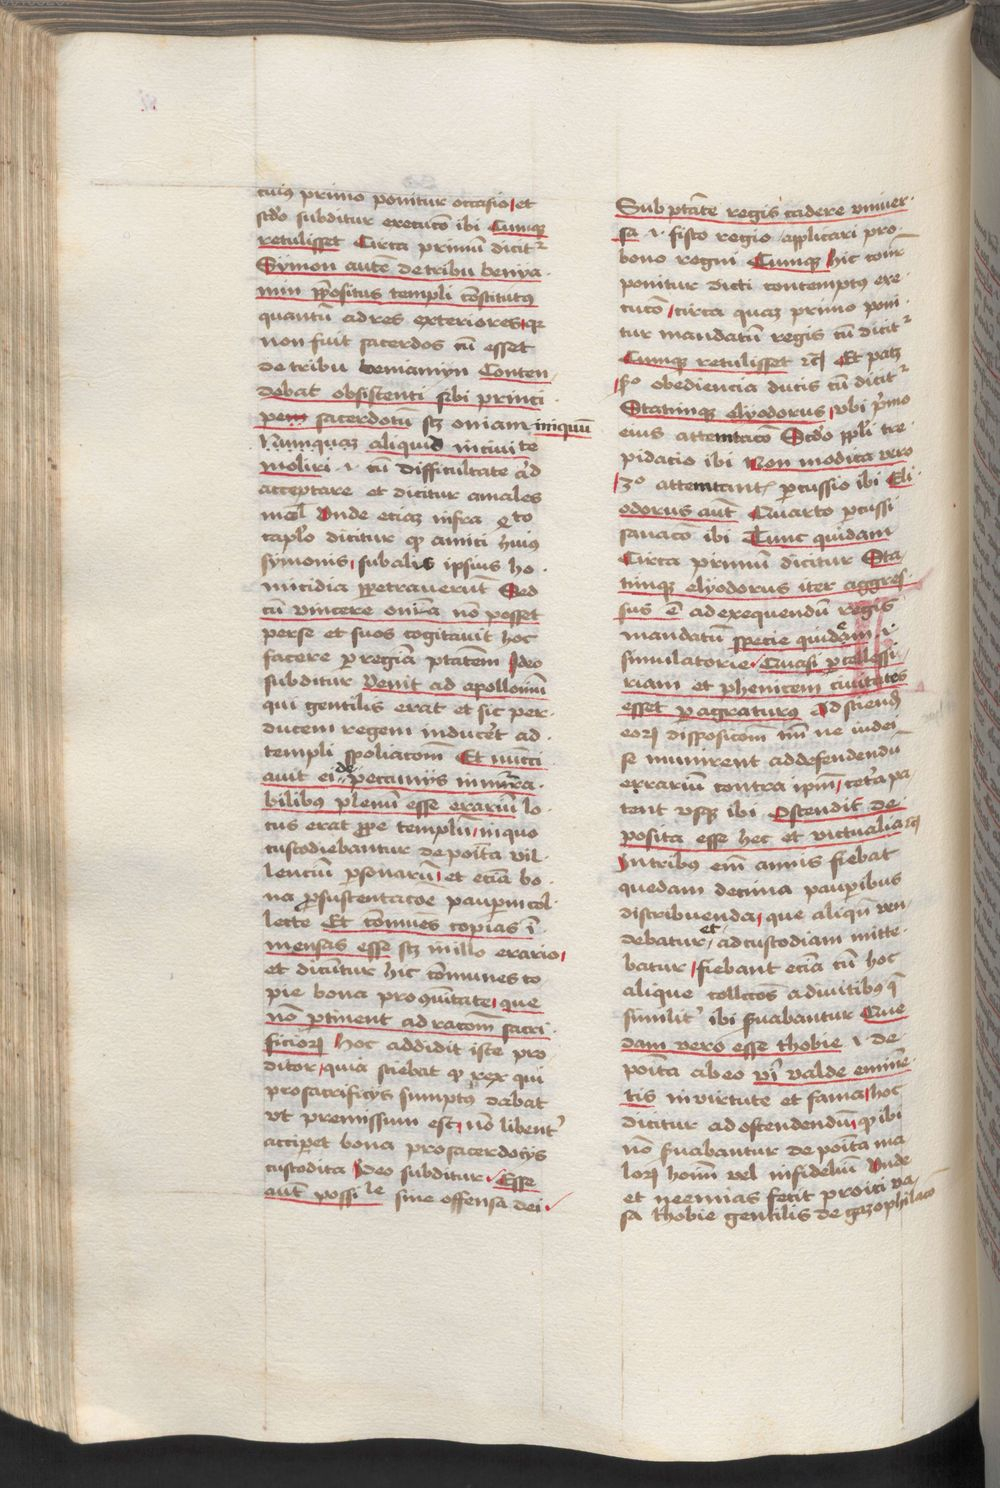 cuius primo ponitur occasio et
scdo subditur execucõ ibi Cumqz
retulisset Circa primũ dicitr
Symon autẽ de tribu benya
min ppositus templi cõstitutus
quantũ ad res exteriores qz
non fuit sacerdos cũ esset
de tribu beniamyn Conten
debat obsistenti sibi princi
pe sacerdotũ sz oniam iniquũ
Numquaz aliquid in civi te
moliri .i. cũ difficultate
acceptare et dicitur amales
Unde eciaz infra 4to
caplo dicitur qp amici huius
symonis subalis ipsius ho
micidia ppetraverũt Sed
cũ vincere oniã nõ posset
per se et suos cogitavit hoc
facere p regiã ptatem Ideo
subditur Venit ad apollonium
qui gentilis erat et sic per
ducem regem inducet ad
templi spoliacom Et nũcci
avit ei de peccunijs innũra
bilibus plenũ esse erariũ lo
cus erat ppe templũ in quo
custodiebantur depoita vil
lenciũ psonarũ et eciã bo
na p sustentacõe paupum col
lecte Et cõmunes copias ĩ
mensas esse sz in illo erario
et dicũtur hic cõmunes co
pie bona pro qũitate que
nõ ptinent ad racom sacri
ficiorz Hoc addidit iste pro
ditor quia sciebat qp rex qui
pro sacrificijs sumptus dabat
ut premissum est nõ libent
accipet bona pro sacerdocijs
custodita Ideo subditur Esse
autẽ possi le sine offensa dei
Sub ptãte regis cadere univer
sa .i. fisco regio applicari pro
bono regni Cumqz hic
ponitur dicti contemptus exe
cucõ circa quaz primo poni
tur mandatũ regis cũ dicitr
Cumqz retulisset rcz Et patz
2o obediencia ducis cũ dicitr
Statimqz elyodorus ubi pmo
eius attemtacõ Scdo ppli tre
pidacio ibi Non modica vero
3o attemtant pcussio ibi Eli
odorus aut Quarto pcussi
sanacõ ibi Tunc quidam
Circa primũ dicitur Sta
timqz elyodorus iter aggres
sus ẽ ad exequendũ regis
mandatũ specie quidem .i.
simulatorie Quasi p cellessi
riam et phenicem civitates
esset pagraturus Ad sciend
eorz disposicom nñ ne iudei
se munirent ad defendendũ
errariũ contra ipm cetã pa
tent usqz ibi Ostendit de
posita esse hec et victualia rcz
In tribus em annis fiebat
quedam decima paupibus
distribuenda que aliqũ ven
debatur et ad custodiam mitte
batur fiebant eciã cũ hoc
alique collectões a divitibus q
similit ibi svabantur Que
dam vero esse thobie .i. de
poita ab eo viri valde eminẽ
tis in virtute et fama hoc
dicitur ad ostendendũ qp ibi
nõ svabantur depoita ma
lorz homm vel infidelium Unde
et neemias fecit proici va
sa thobie gentilis de gazophilaco